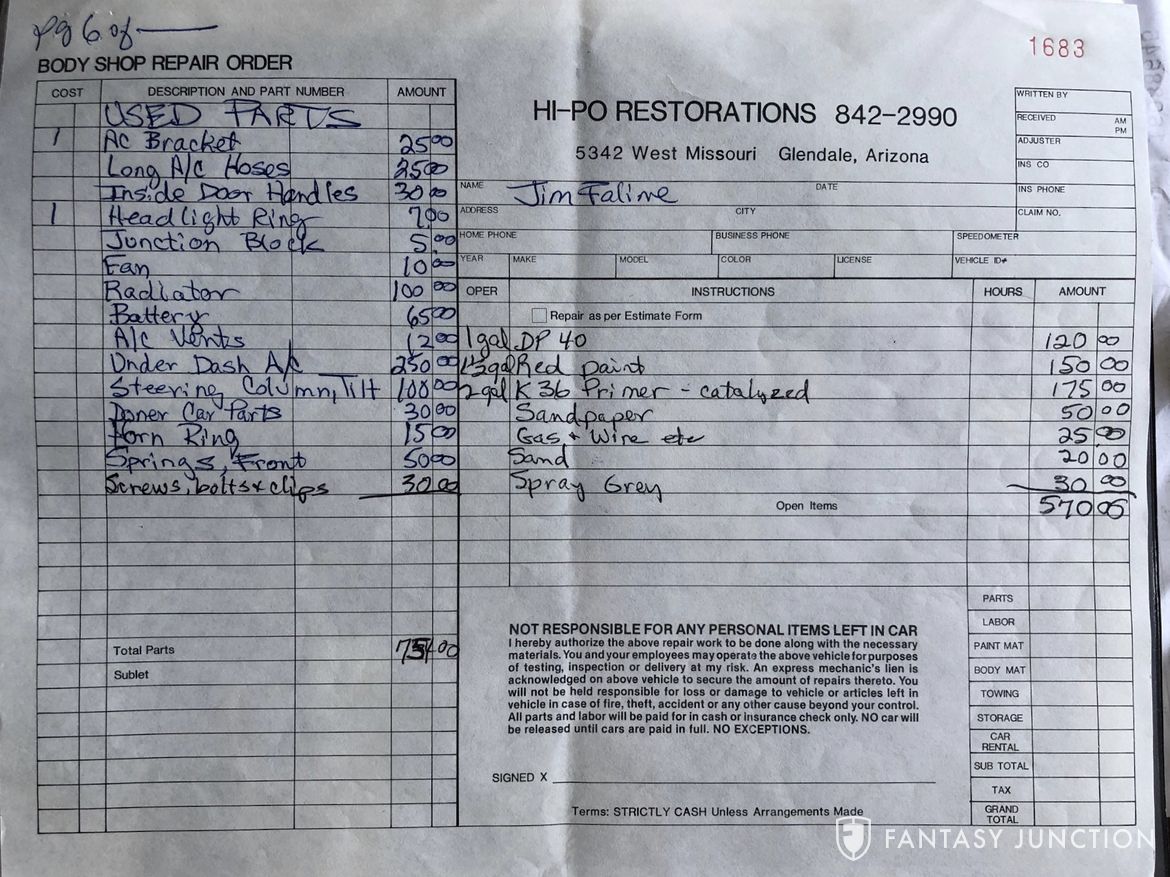 pg 6 of
1683
BODY SHOP REPAIR ORDER
COST DESCRIPTION AND PART NUMBER AMOUNT
USED PARTS
1 AC Bracket 25 00
Long A/C Hoses 25 00
Inside Door Handles 30 00
1 Headlight Ring 7.00
Junction Block 5.00
Fan 10 00
Radiator 100 00
Battery 65 00
A/C Vents 12 00
Under Dash A/C 250 00
Steering Column, Tilt 100 00
Doner Car Parts 30 00
Horn Ring 15 00
Springs, Front 50 00
Screws, bolts & clips 30 00
Total Parts 00
Sublet
HI-PO RESTORATIONS 842-2990
5342 West Missouri Glendale, Arizona
WRITTEN BY
RECEIVED AM PM
ADJUSTER
INS CO
INS PHONE
CLAIM NO.
NAME Jim Faline DATE
ADDRESS CITY
HOME PHONE BUSINESS PHONE SPEEDOMETER
YEAR MAKE MODEL COLOR LICENSE VEHICLE ID#
OPER INSTRUCTIONS HOURS AMOUNT
Repair as per Estimate Form
1 gal DP 40 120 00
gal Red paint 150 00
2 gal K 36 Primer - catalyzed 175 00
Sandpaper 50 00
Gas & Wire etc 25 00
Sand 20 00
Spray Grey 30 00
Open Items 570
NOT RESPONSIBLE FOR ANY PERSONAL ITEMS LEFT IN CAR
I hereby authorize the above repair work to be done along with the necessary
materials. You and your employees may operate the above vehicle for purposes
of testing, inspection or delivery at my risk. An express mechanic's lien is
acknowledged on above vehicle to secure the amount of repairs thereto. You
will not be held responsible for loss or damage to vehicle or articles left in
vehicle in case of fire, theft, accident or any other cause beyond your control.
All parts and labor will be paid for in cash or insurance check only. NO car will
be released until cars are paid in full. NO EXCEPTIONS.
SIGNED X
Terms: STRICTLY CASH Unless Arrangements Made
PARTS
LABOR
PAINT MAT
BODY MAT
TOWING
STORAGE
CAR RENTAL
SUB TOTAL
TAX
GRAND TOTAL
FANTASY JUNCTION